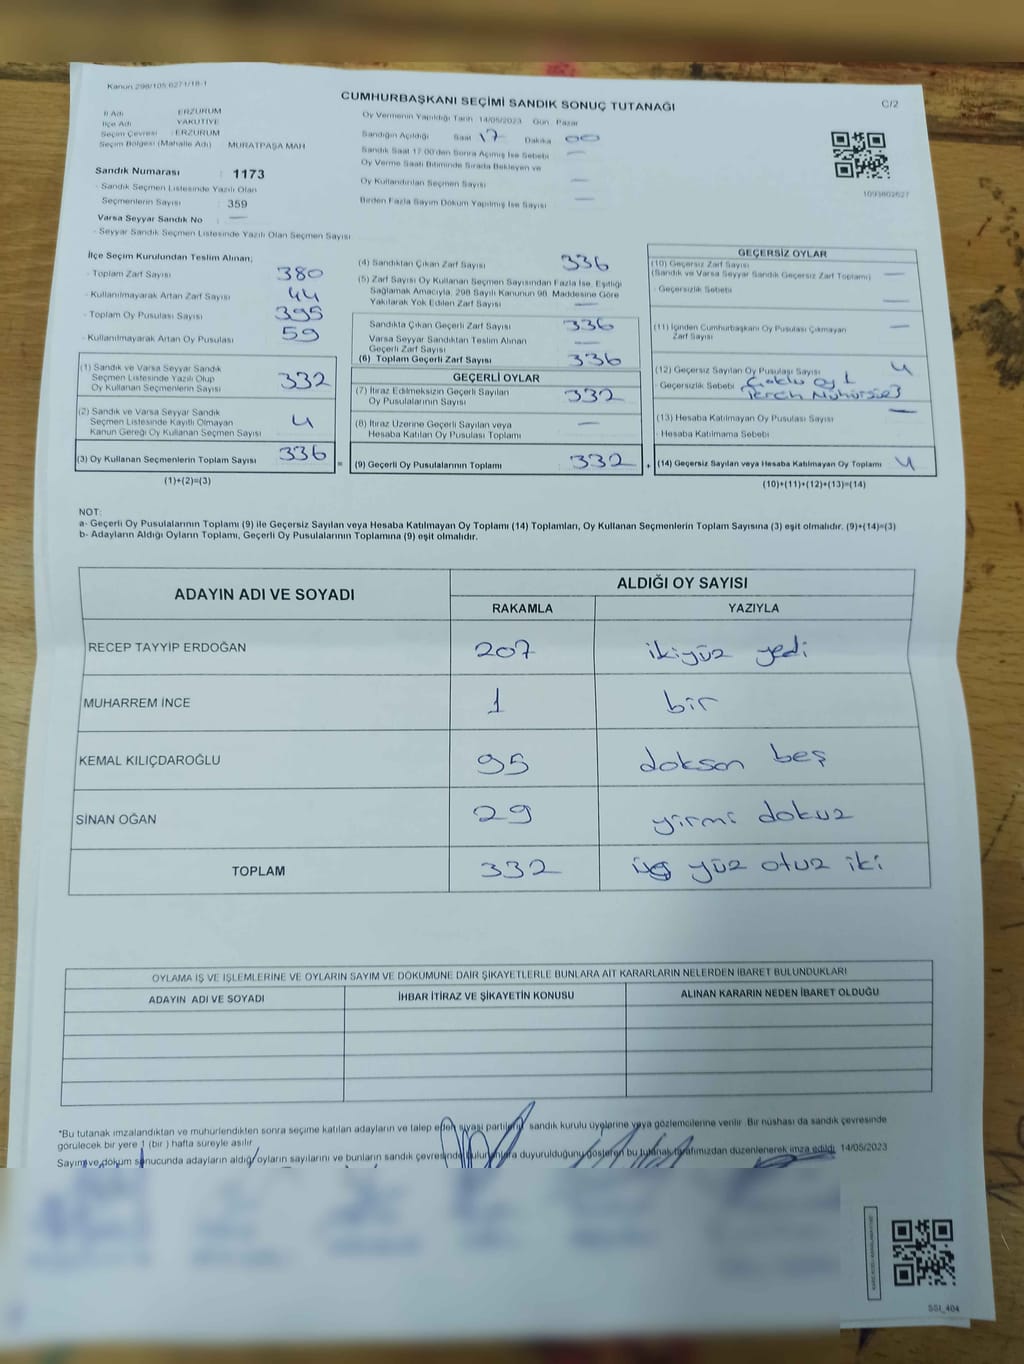 Kanun 298/105 6271/18-1
CUMHURBAŞKANI SEÇİMİ SANDIK SONUÇ TUTANAĞI
C/2
İl Adı : ERZURUM
İlçe Adı : YAKUTİYE
Seçim Çevresi : ERZURUM
Seçim Bölgesi (Mahalle Adı) MURATPAŞA MAH
Sandık Numarası : 1173
- Sandık Seçmen Listesinde Yazılı Olan
Seçmenlerin Sayısı : 359
Varsa Seyyar Sandık No : —
- Seyyar Sandık Seçmen Listesinde Yazılı Olan Seçmen Sayısı
Oy Vermenin Yapıldığı Tarih 14/05/2023 Gün Pazar
Sandığın Açıldığı Saat 17 Dakika 00
Sandık Saat 17.00'den Sonra Açılmış İse Sebebi —
Oy Verme Saati Bitiminde Sırada Bekleyen ve
Oy Kullandırılan Seçmen Sayısı —
Birden Fazla Sayım Döküm Yapılmış İse Sayısı —
1093802627
İlçe Seçim Kurulundan Teslim Alınan;
- Toplam Zarf Sayısı 380
- Kullanılmayarak Artan Zarf Sayısı 44
- Toplam Oy Pusulası Sayısı 395
- Kullanılmayarak Artan Oy Pusulası 59
(1) Sandık ve Varsa Seyyar Sandık
Seçmen Listesinde Yazılı Olup
Oy Kullanan Seçmenlerin Sayısı 332
(2) Sandık ve Varsa Seyyar Sandık
Seçmen Listesinde Kayıtlı Olmayan
Kanun Gereği Oy Kullanan Seçmen Sayısı 4
(3) Oy Kullanan Seçmenlerin Toplam Sayısı 336
(1)+(2)=(3)
(4) Sandıktan Çıkan Zarf Sayısı 336
(5) Zarf Sayısı Oy Kullanan Seçmen Sayısından Fazla İse, Eşitliği
Sağlamak Amacıyla, 298 Sayılı Kanunun 98. Maddesine Göre
Yakılarak Yok Edilen Zarf Sayısı —
Sandıkta Çıkan Geçerli Zarf Sayısı 336
Varsa Seyyar Sandıktan Teslim Alınan
Geçerli Zarf Sayısı —
(6) Toplam Geçerli Zarf Sayısı 336
GEÇERLİ OYLAR
(7) İtiraz Edilmeksizin Geçerli Sayılan
Oy Pusulalarının Sayısı 332
(8) İtiraz Üzerine Geçerli Sayılan veya
Hesaba Katılan Oy Pusulası Toplamı —
= (9) Geçerli Oy Pusulalarının Toplamı 332 +
GEÇERSİZ OYLAR
(10) Geçersiz Zarf Sayısı
(Sandık ve Varsa Seyyar Sandık Geçersiz Zarf Toplamı) —
- Geçersizlik Sebebi —
(11) İçinden Cumhurbaşkanı Oy Pusulası Çıkmayan
Zarf Sayısı —
(12) Geçersiz Sayılan Oy Pusulası Sayısı 4
- Geçersizlik Sebebi Çoklu oy 1
Tercih Mühürsüz 3
(13) Hesaba Katılmayan Oy Pusulası Sayısı —
- Hesaba Katılmama Sebebi
(14) Geçersiz Sayılan veya Hesaba Katılmayan Oy Toplamı 4
(10)+(11)+(12)+(13)=(14)
NOT:
a- Geçerli Oy Pusulalarının Toplamı (9) ile Geçersiz Sayılan veya Hesaba Katılmayan Oy Toplamı (14) Toplamları, Oy Kullanan Seçmenlerin Toplam Sayısına (3) eşit olmalıdır. (9)+(14)=(3)
b- Adayların Aldığı Oyların Toplamı, Geçerli Oy Pusulalarının Toplamına (9) eşit olmalıdır.
ADAYIN ADI VE SOYADI
ALDIĞI OY SAYISI
RAKAMLA YAZIYLA
RECEP TAYYİP ERDOĞAN 207 ikiyüz yedi
MUHARREM İNCE 1 bir
KEMAL KILIÇDAROĞLU 95 doksan beş
SİNAN OĞAN 29 yirmi dokuz
TOPLAM 332 üç yüz otuz iki
OYLAMA İŞ VE İŞLEMLERİNE VE OYLARIN SAYIM VE DÖKÜMÜNE DAİR ŞİKAYETLERLE BUNLARA AİT KARARLARIN NELERDEN İBARET BULUNDUKLARI
ADAYIN ADI VE SOYADI İHBAR İTİRAZ VE ŞİKAYETİN KONUSU ALINAN KARARIN NEDEN İBARET OLDUĞU
*Bu tutanak imzalandıktan ve mühürlendikten sonra seçime katılan adayların ve talep eden siyasi partilerin sandık kurulu üyelerine veya gözlemcilerine verilir. Bir nüshası da sandık çevresinde
görülecek bir yere 1 (bir ) hafta süreyle asılır.
Sayım ve döküm sonucunda adayların aldığı oyların sayılarını ve bunların sandık çevresinde bulunanlara duyurulduğunu gösteren bu tutanak tarafımızdan düzenlenerek imza edildi. 14/05/2023
SSI_404